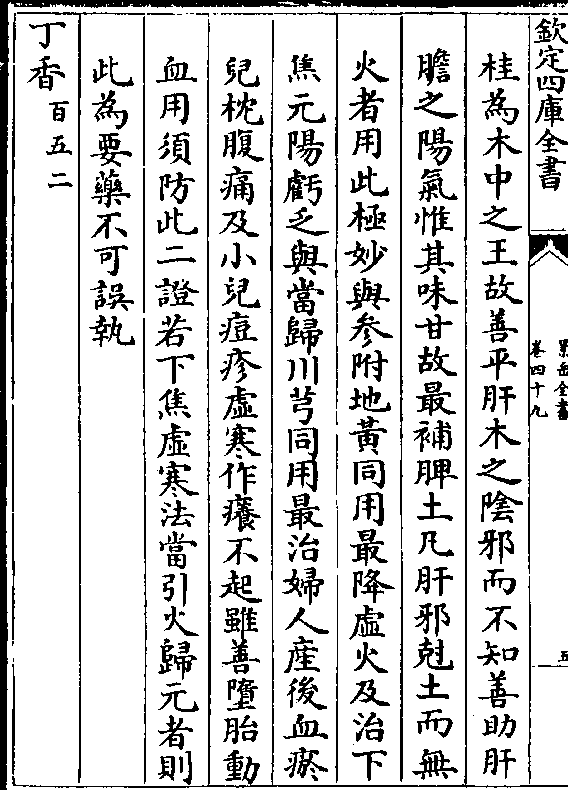 欽定四庫全書
景岳全書
卷四十九
五
桂為木中之王故善平肝木之陰邪而不知善助肝
膽之陽氣惟其味甘故最補脾土凡肝邪尅土而無
火者用此極妙與參附地黃同用最降虛火及治下
焦元陽虧乏與當歸川芎同用最治婦人産後血瘀
兒枕腹痛及小兒痘疹虛寒作癢不起雖善墮胎動
血用須防此二證若下焦虛寒法當引火歸元者則
此為要藥不可誤執
丁香百五二